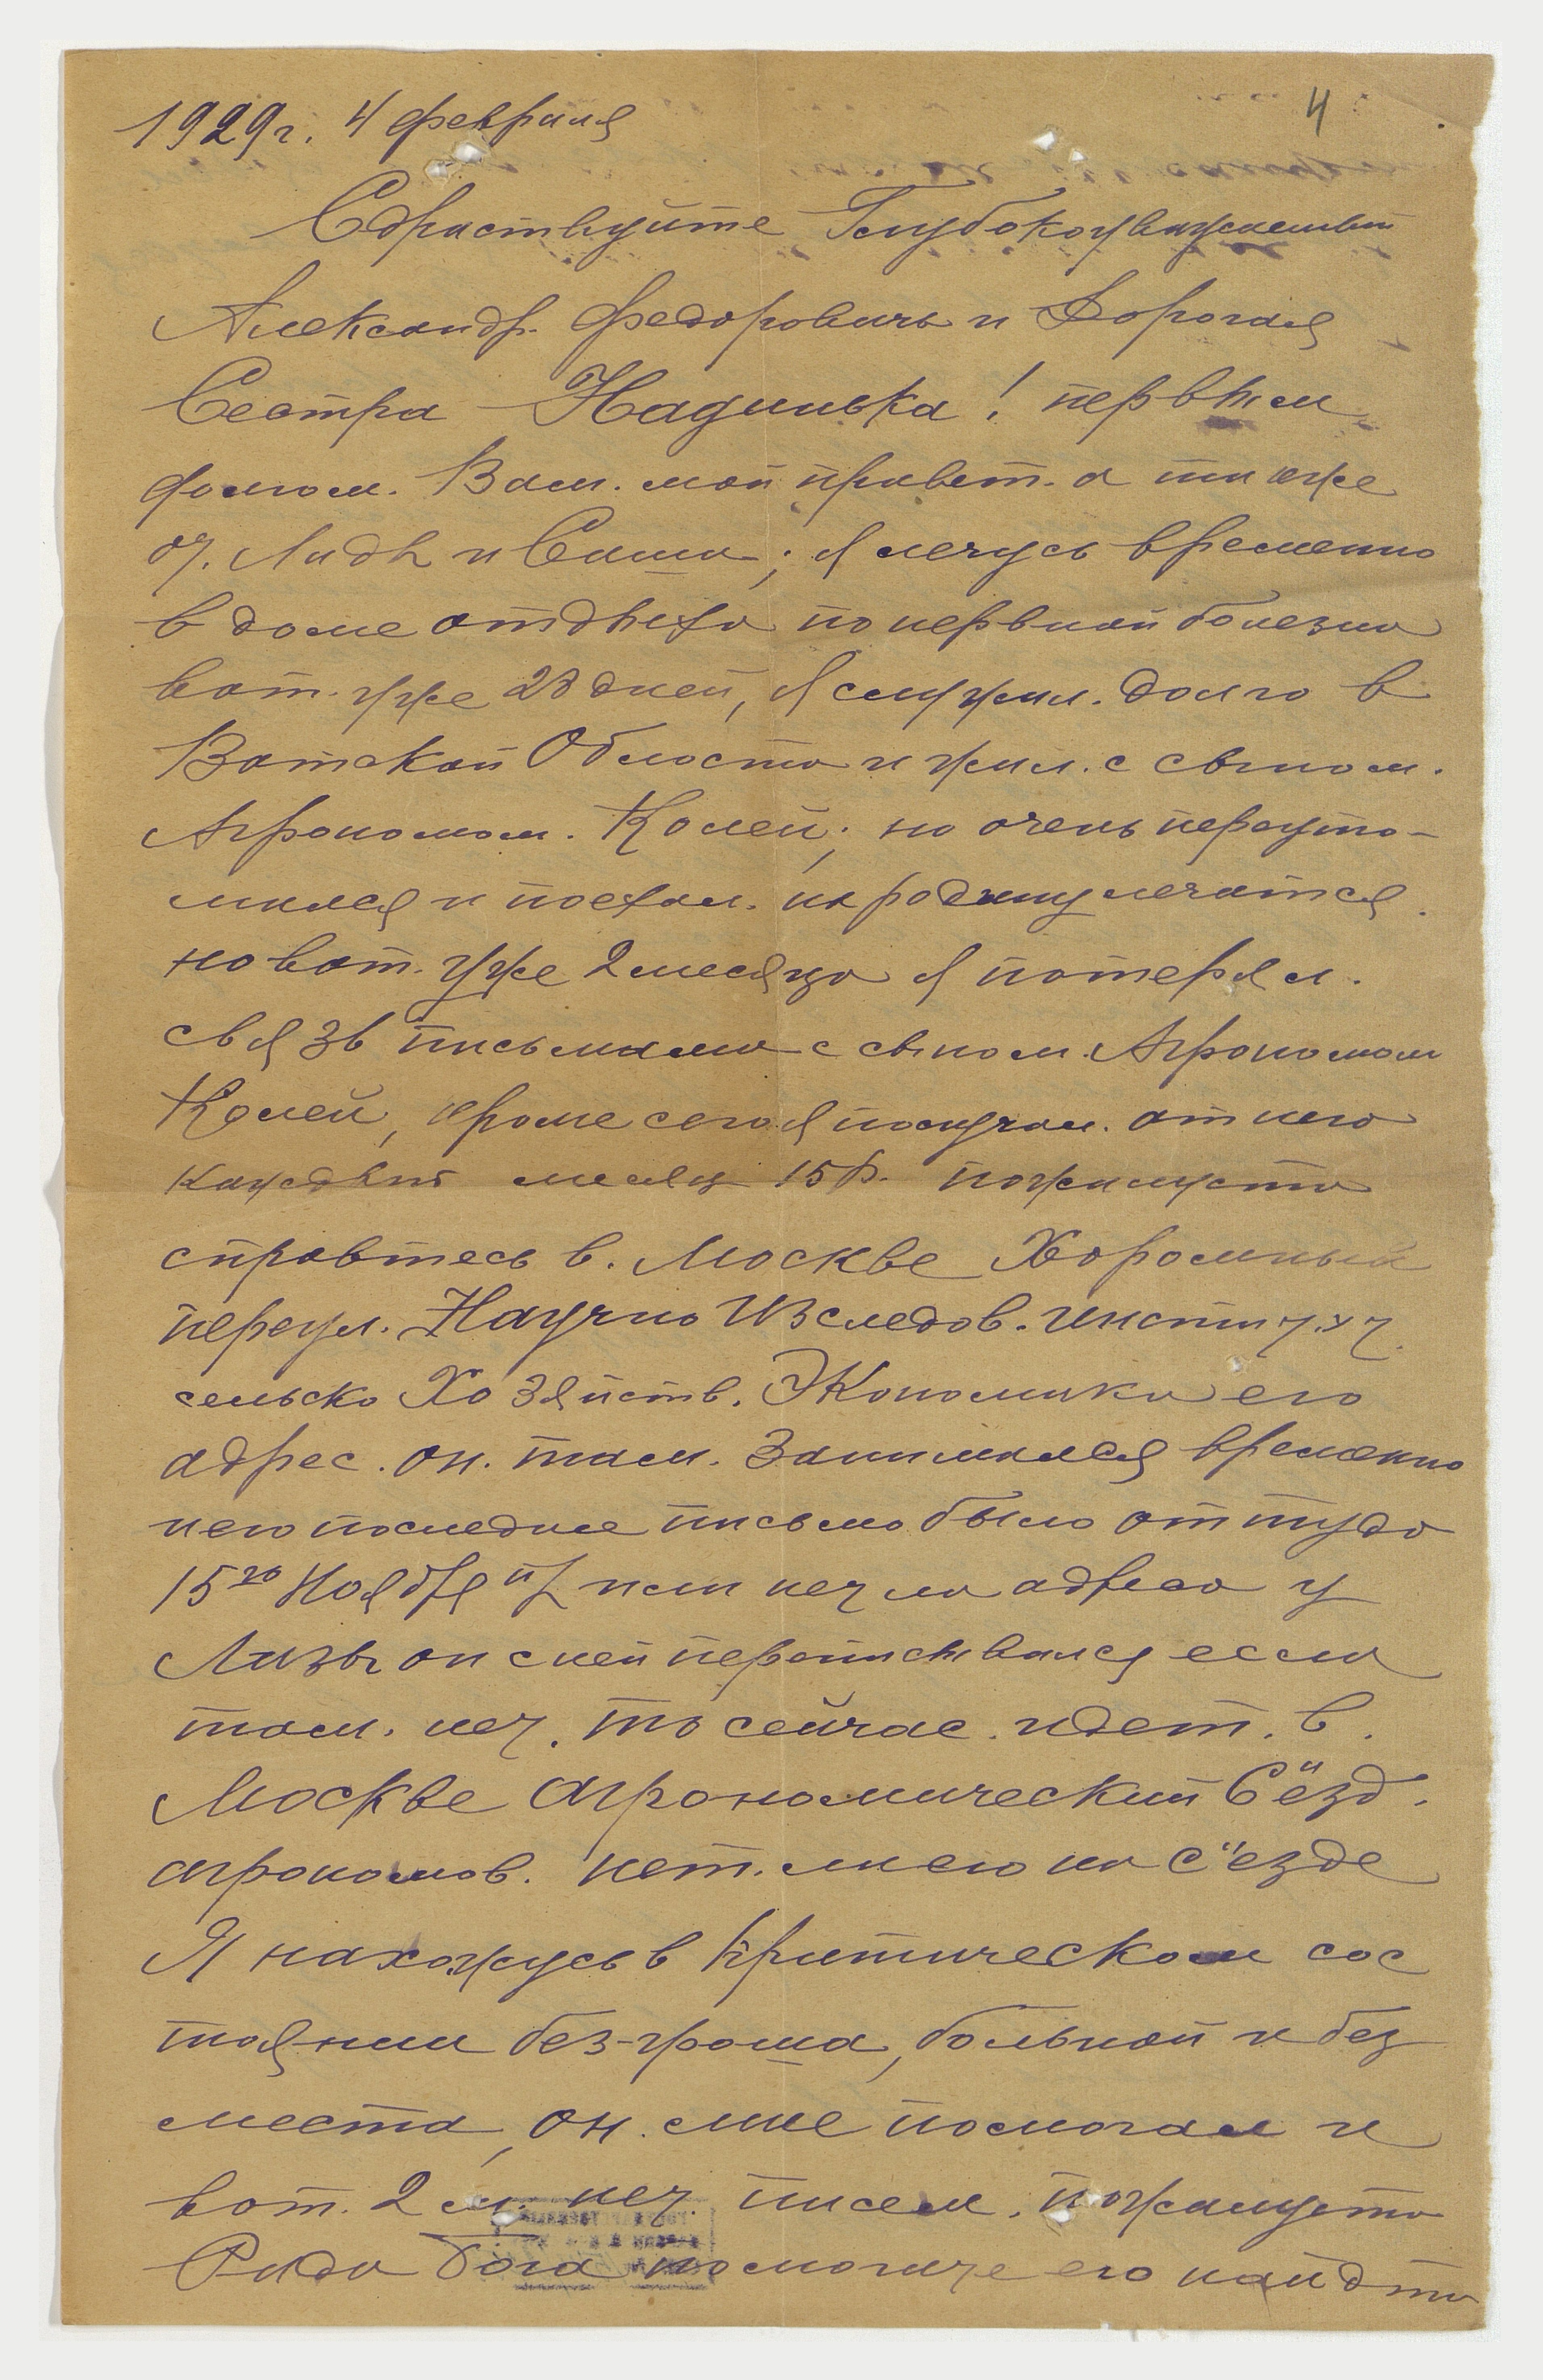 1929г. 4 февраля
4
Сдраствуйте Глубокоуважаемый
Александр. Федорович и Дорогая
Сестра Надинька! первым
долгом. Вам. мой привет. а так же
от. Лиды и Саши; я лечусь временно
в доме отдыха по нервной болезни
вот. уже 23 дней, я служил. долго в
Вотской Области и жил. с сыном.
Агрономом. Колей; но очень переуто-
мился и поехал. на родину лечатся.
но вот. уже 2 месяца я потерял.
связь письмами с сыном. Агрономом
Колей, кроме сего я получал. от него
каждый месяц 15 р. пожалуста
справтесь в. Москве Хоромный
переул. Научно Изследов. институт
сельско Хозяйств. Экономики его
адрес. он. там. Занимался временно
и его последнее письмо было от туда
15го Ноября нет ли адреса у
Лизы он с ней переписывался если
там. нет. то сейчас. идет. в.
Москве агрономический С"езд.
агрономов. нет. ли его на с"езде
Я нахожусь в критическом сос
тоянии без-гроша, больной и без
места, он. мне помогал и
вот. 2 м. нет. писем. пожалуста
Ради Бога помогите его найдти